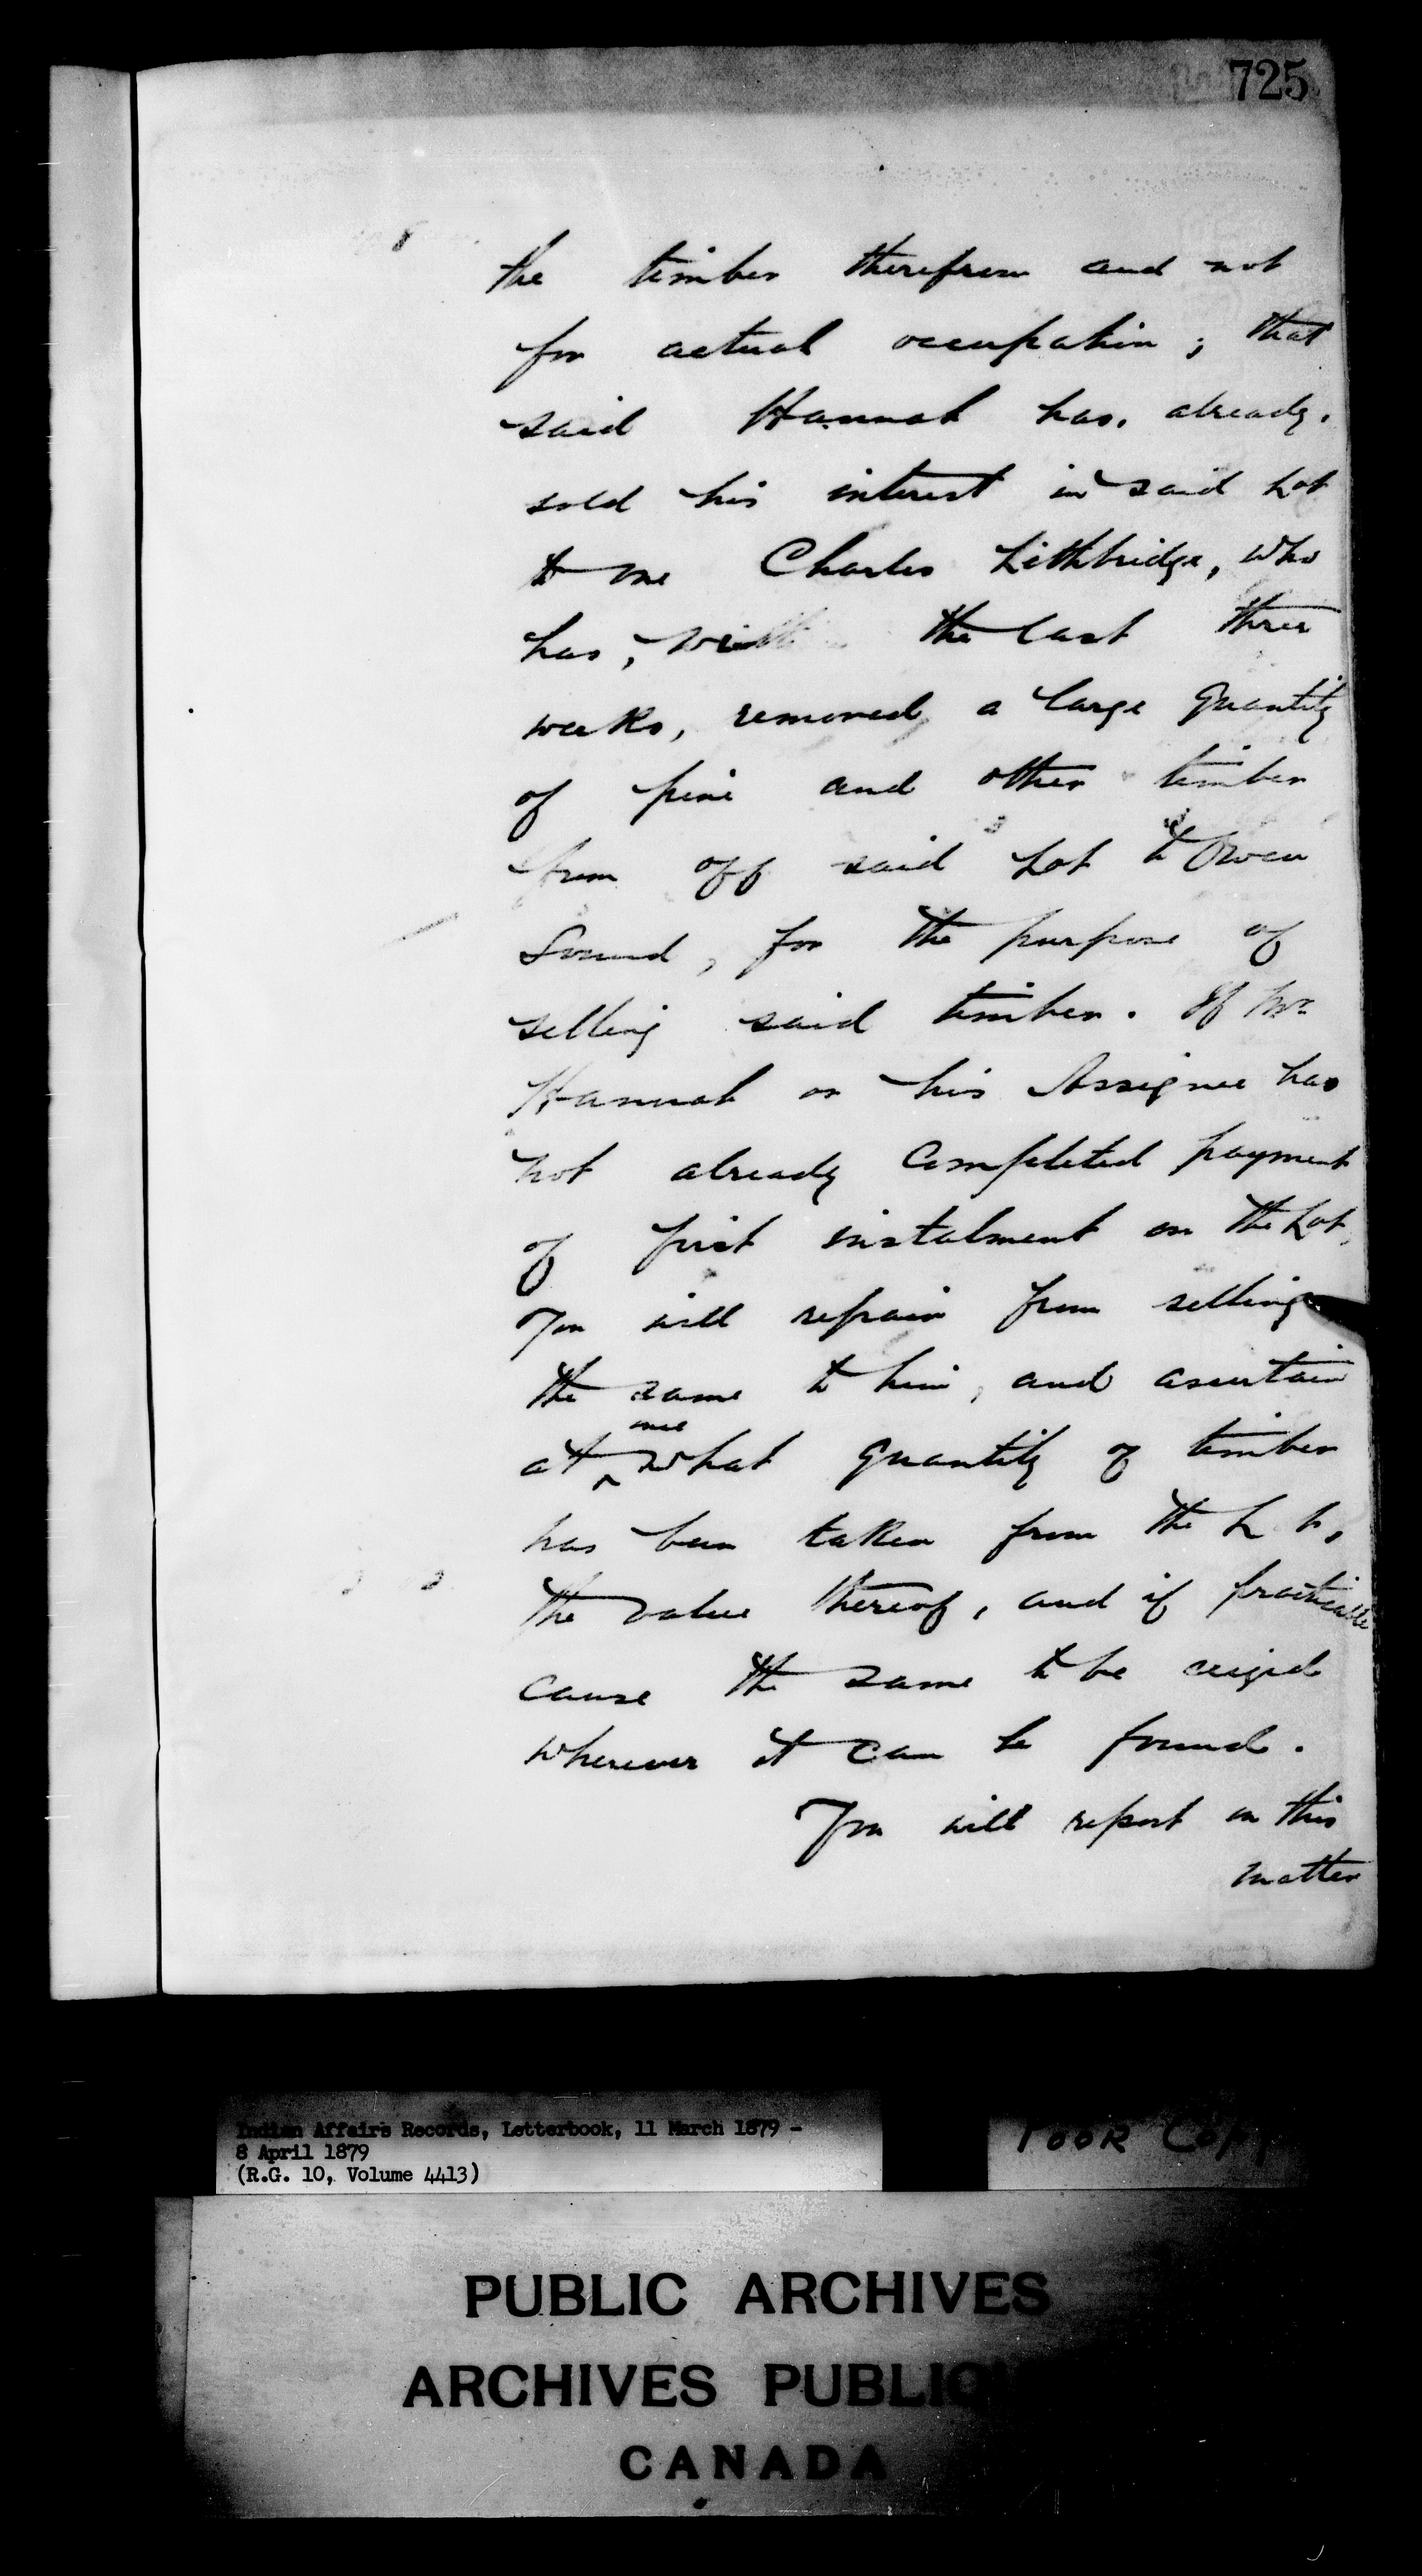 725
the timber therefrom and not
for actual occupation; that
said Hannah has, already,
sold his interest in said Lot
to one Charles Lithbridge, who
has, with the last three
weeks, removed a large quantity
of pine and other timber
from off said Lot to Owen
Sound, for the purpose of
selling said timber. If Mr.
Hannah or his Assignee has
not already completed payment
of first instalment on the Lot,
You will refrain from selling
the same to him, and ascertain
once
at ^ what quantity of timber
has been taken from the Lot,
the value thereof, and if practicable
cause the same to be seized
wherever it can be found.
You will report on this
matter
Indian Affairs Records, Letterbook, 11 March 1879 -
8 April 1879
(R.G. 10, Volume 4413)
POOR COPY
PUBLIC ARCHIVES
ARCHIVES PUBLIQ
CANADA